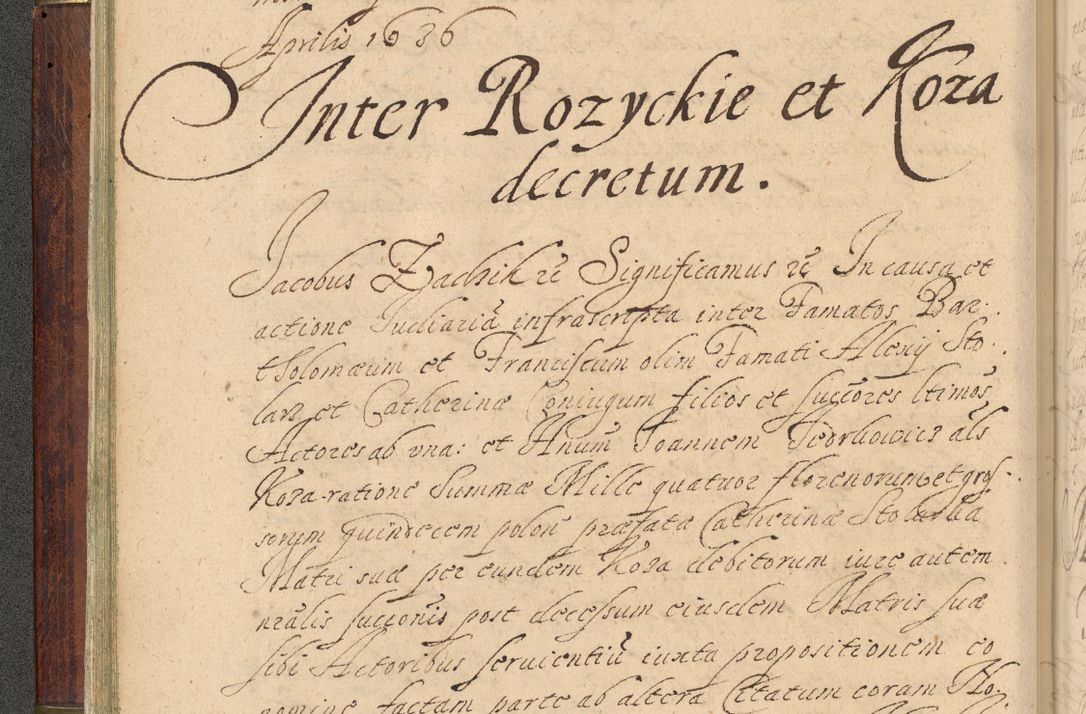 Aprilis 1636
Inter Rozyckie et Koza
decretum.
Jacobus Zadzik rc Significamus rc In causa et
actione Iudiaria infrascripta inter Famatos Bar.
tholomæum et Franciscum olim Famati Alexij Sto.
larz et Catherinæ Coniugum filios et succores ltimos
Actores ab vna: et Hnum Joannem Teorkowicz als
Koza ratione Summæ Mille quatuor florenorum et gros-
sorum quindecem polon præfata Catherinæ Stolarka
Matri suæ per eundem Koza debitorum iure autem
nralis succonis post decessum eiusdem Matris suæ
sibi Actoribus seruientiu iuxta propositionem eo
nomine factam parte ab altera Citatum coram No.